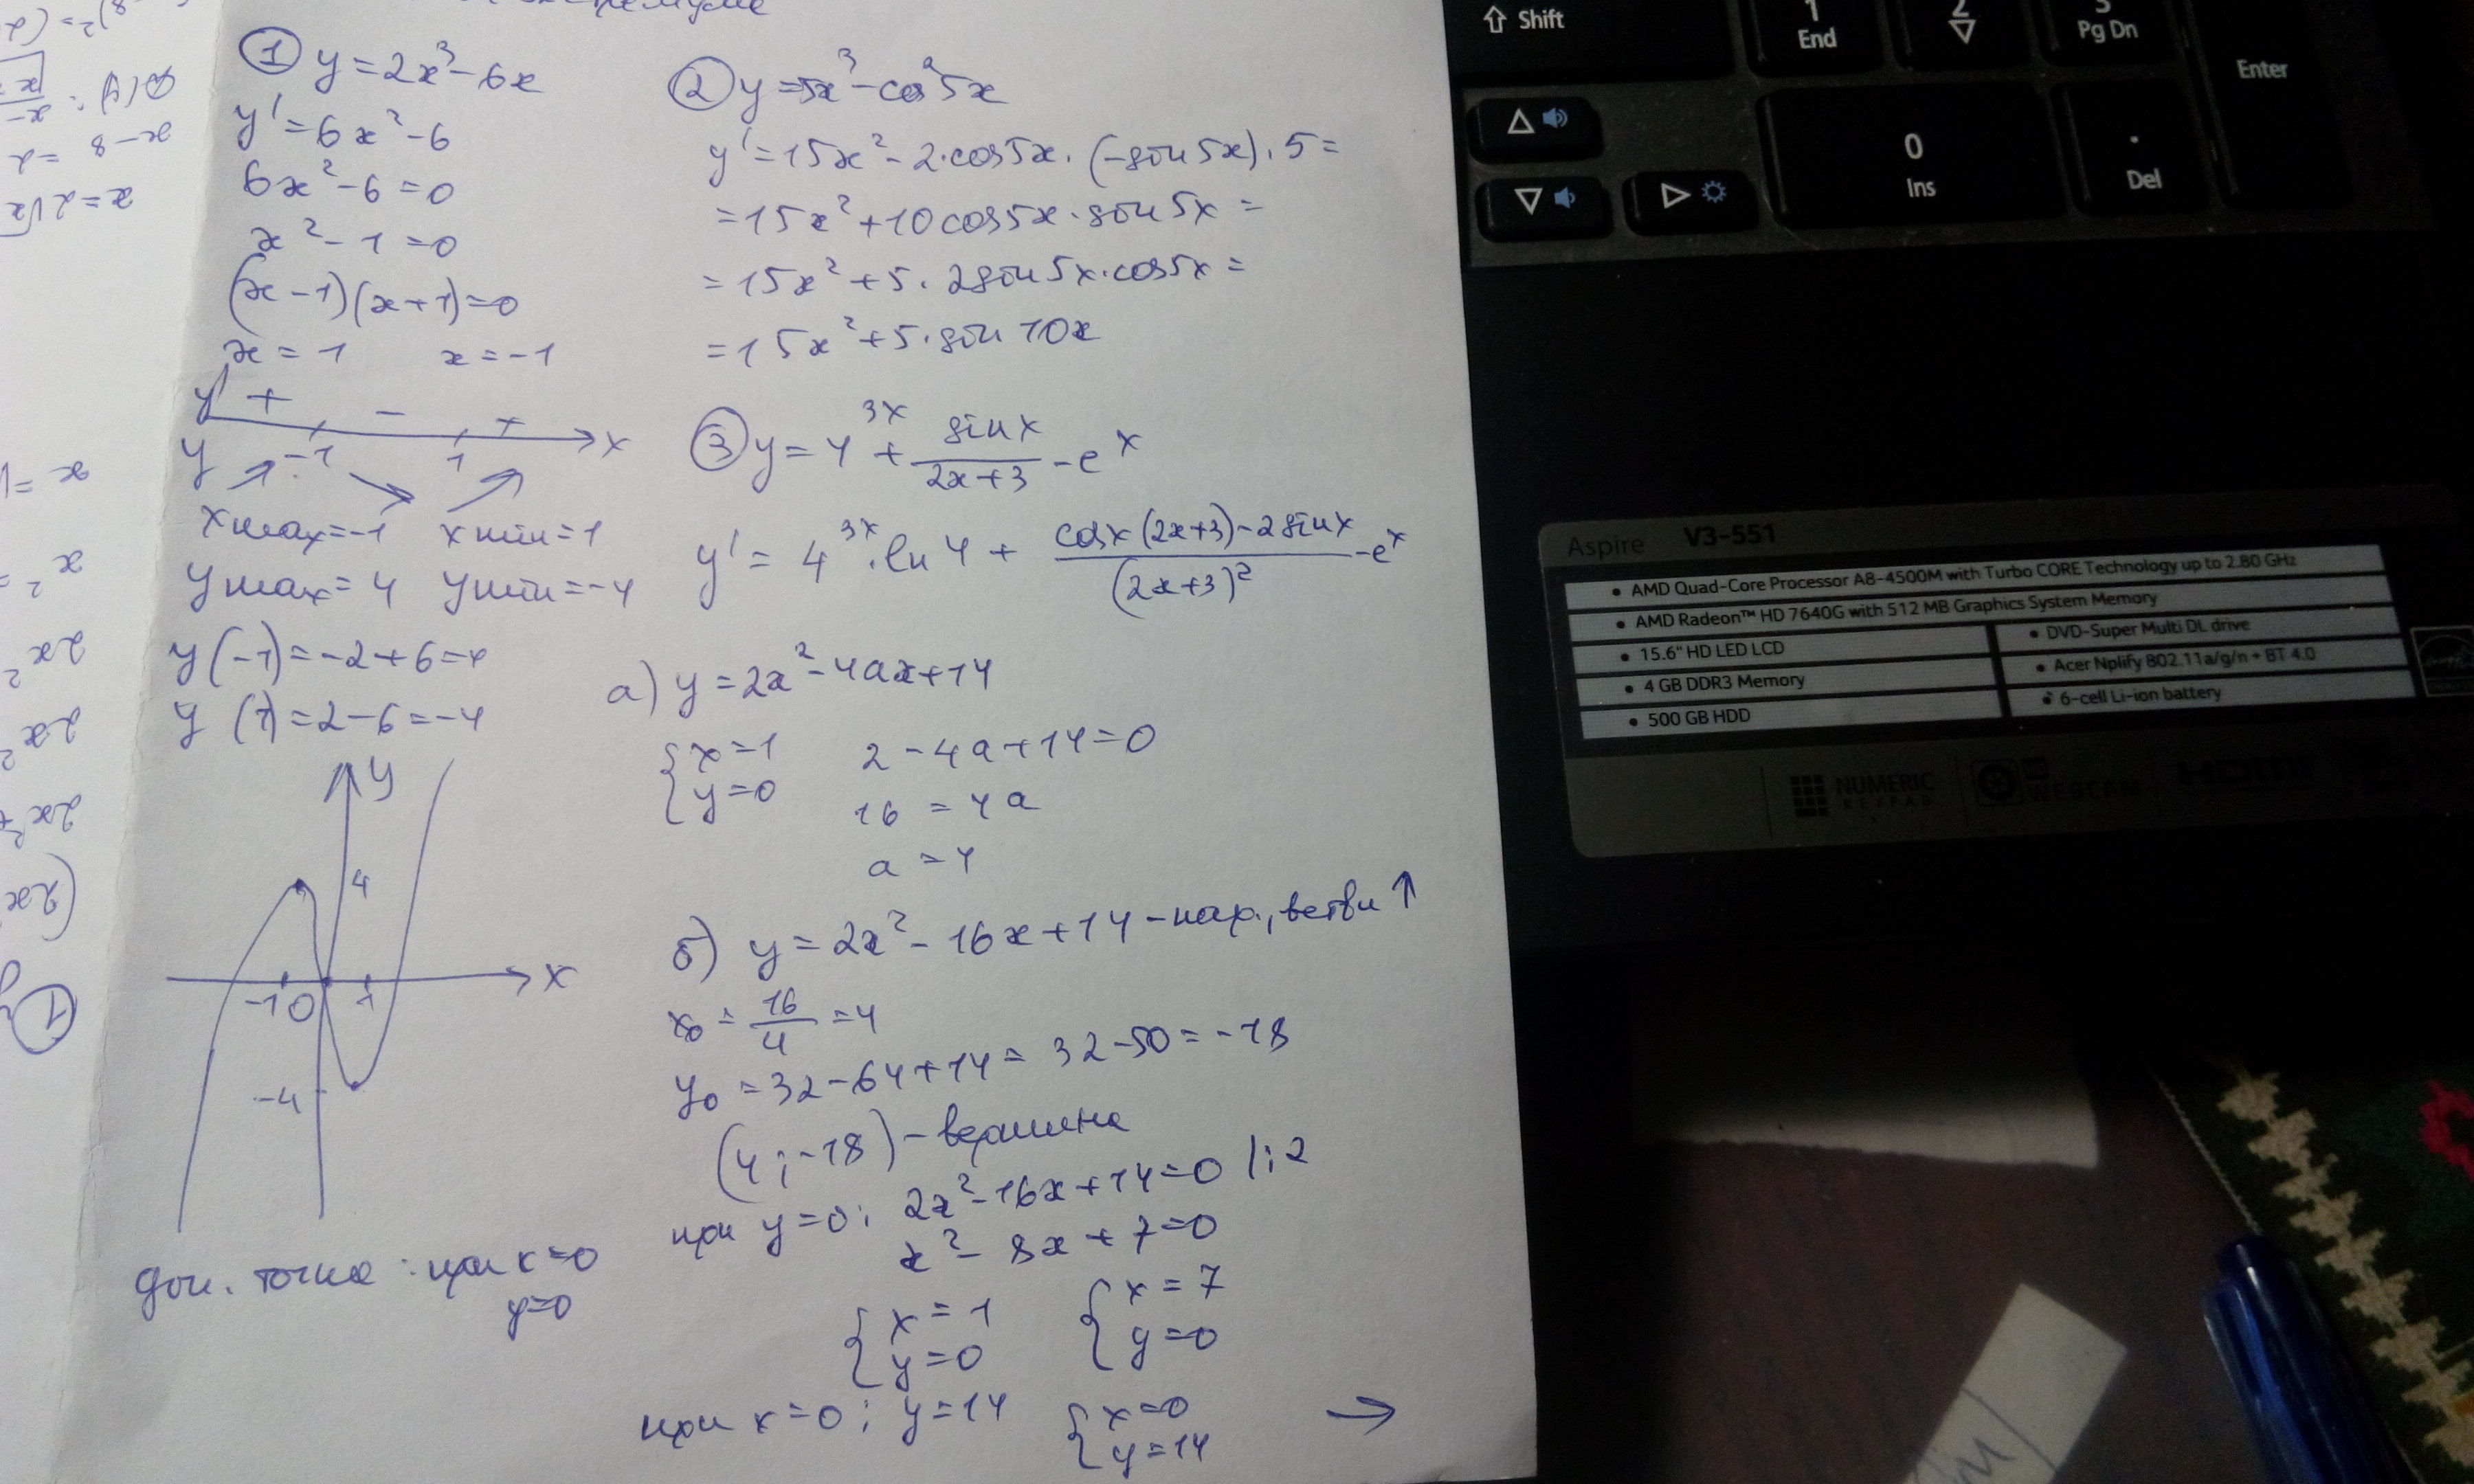 ① y=2x³-6x
y'=6x²-6
6x²-6=0
x²-1=0
(x-1)(x+1)=0
x=1 x=-1
y' + - + x
y -1 1
xmax=-1 xmin=1
ymax=4 ymin=-4
y(-1)=-2+6=4
y(1)=2-6=-4
y
4
-1 0 1 x
-4
доп. точка: при x=0
y=0
② y=5x³-cos²5x
y'=15x²-2·cos5x·(-sin5x)·5=
=15x²+10cos5x·sin5x=
=15x²+5·2sin5x·cos5x=
=15x²+5·sin10x
③ y=4^(3x)+sinx/(2x+3)-e^x
y'=4^(3x)·ln4+(cosx(2x+3)-2sinx)/(2x+3)²-e^x
а) y=2x²-4ax+14
{x=1 2-4a+14=0
{y=0 16=4a
a=4
б) y=2x²-16x+14-пар., ветви↑
x₀=16/4=4
y₀=32-64+14=32-50=-18
(4;-18)-вершина
при y=0: 2x²-16x+14=0 |:2
x²-8x+7=0
{x=1 {x=7
{y=0 {y=0
при x=0: y=14 {x=0 →
{y=14
x-8=2
x=2√x
①
Shift
1 End
2
3 Pg Dn
Enter
0 Ins
. Del
Aspire V3-551
• AMD Quad-Core Processor A8-4500M with Turbo CORE Technology up to 2.80 GHz
• AMD Radeon™ HD 7640G with 512 MB Graphics System Memory
• 15.6" HD LED LCD
• DVD-Super Multi DL drive
• 4 GB DDR3 Memory
• Acer Nplify 802.11a/g/n + BT 4.0
• 500 GB HDD
• 6-cell Li-ion battery
NUMERIC KEYPAD
HD WEBCAM
HDMI